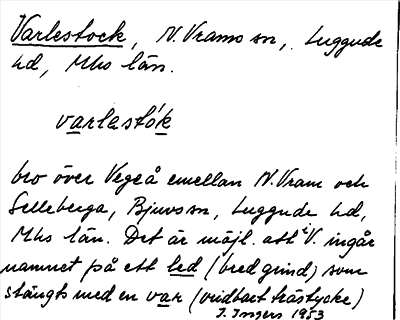 Varlestock, N. Vrams sn, Luggude
hd, Mhs län.
varlestó̄k
bro över Vegeå emellan N. Vram och
Selleberga, Bjuvs sn, Luggude hd,
Mhs län. Det är möjl. att i V. ingår
namnet på ett led (bred grind) som
stängts med en var (vridbart trästycke)
J. Ingers 1953